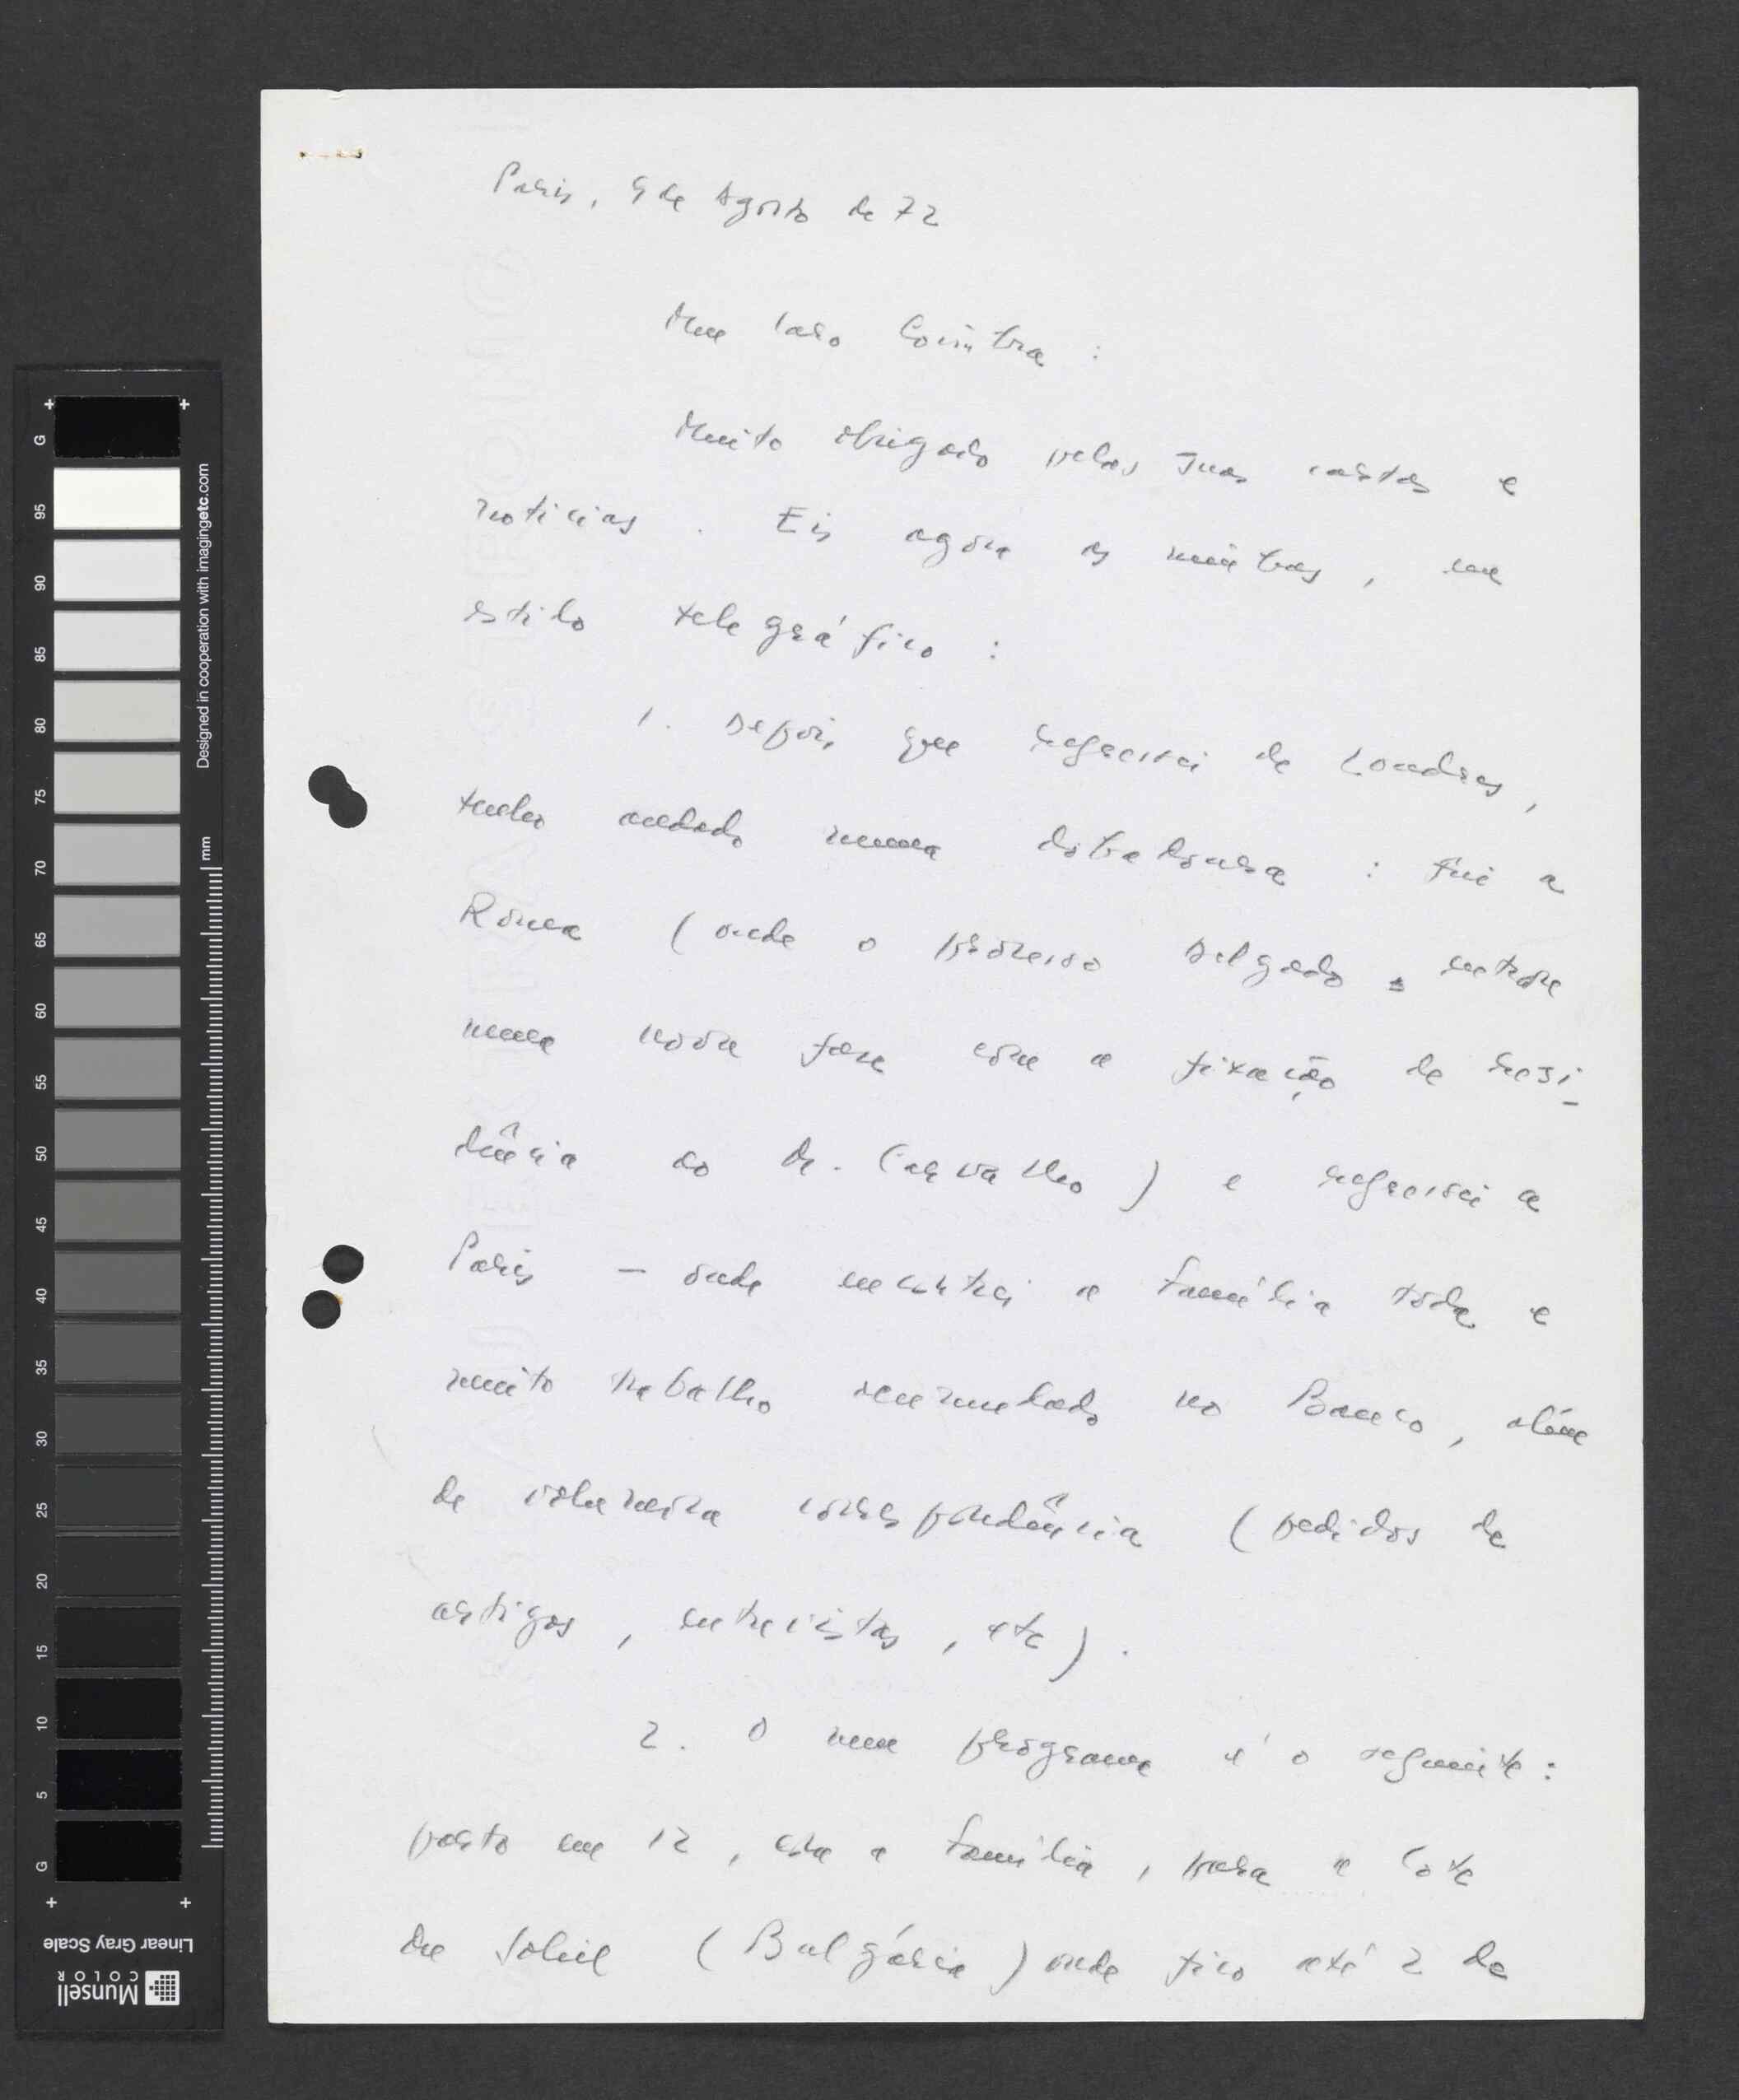 Paris, 9 de Agosto de 72
Meu caro Coimbra:
Muito obrigado pelas suas cartas e
notícias. Eis agora as minhas, em
estilo telegráfico:
1. Depois que regressei de Londres,
tenho andado numa dobadoura: fui a
Roma (onde o processo Delgado entrou
numa nova fase com a fixação de resi-
dência ao dr. Carvalho) e regressei a
Paris — onde encontrei a família toda e
muito trabalho acumulado no Banco, além
de volumosa correspondência (pedidos de
artigos, entrevistas, etc).
2. O meu programa é o seguinte:
parto em 12, com a família, para a Cote
du Soleil (Bulgária) onde fico até 2 de
G 95 90 85 80 75 70 65 60 55 50 45 40 35 30 25 20 15 10 5 G
mm
Designed in cooperation with imagingetc.com
Linear Gray Scale
Munsell
COLOR